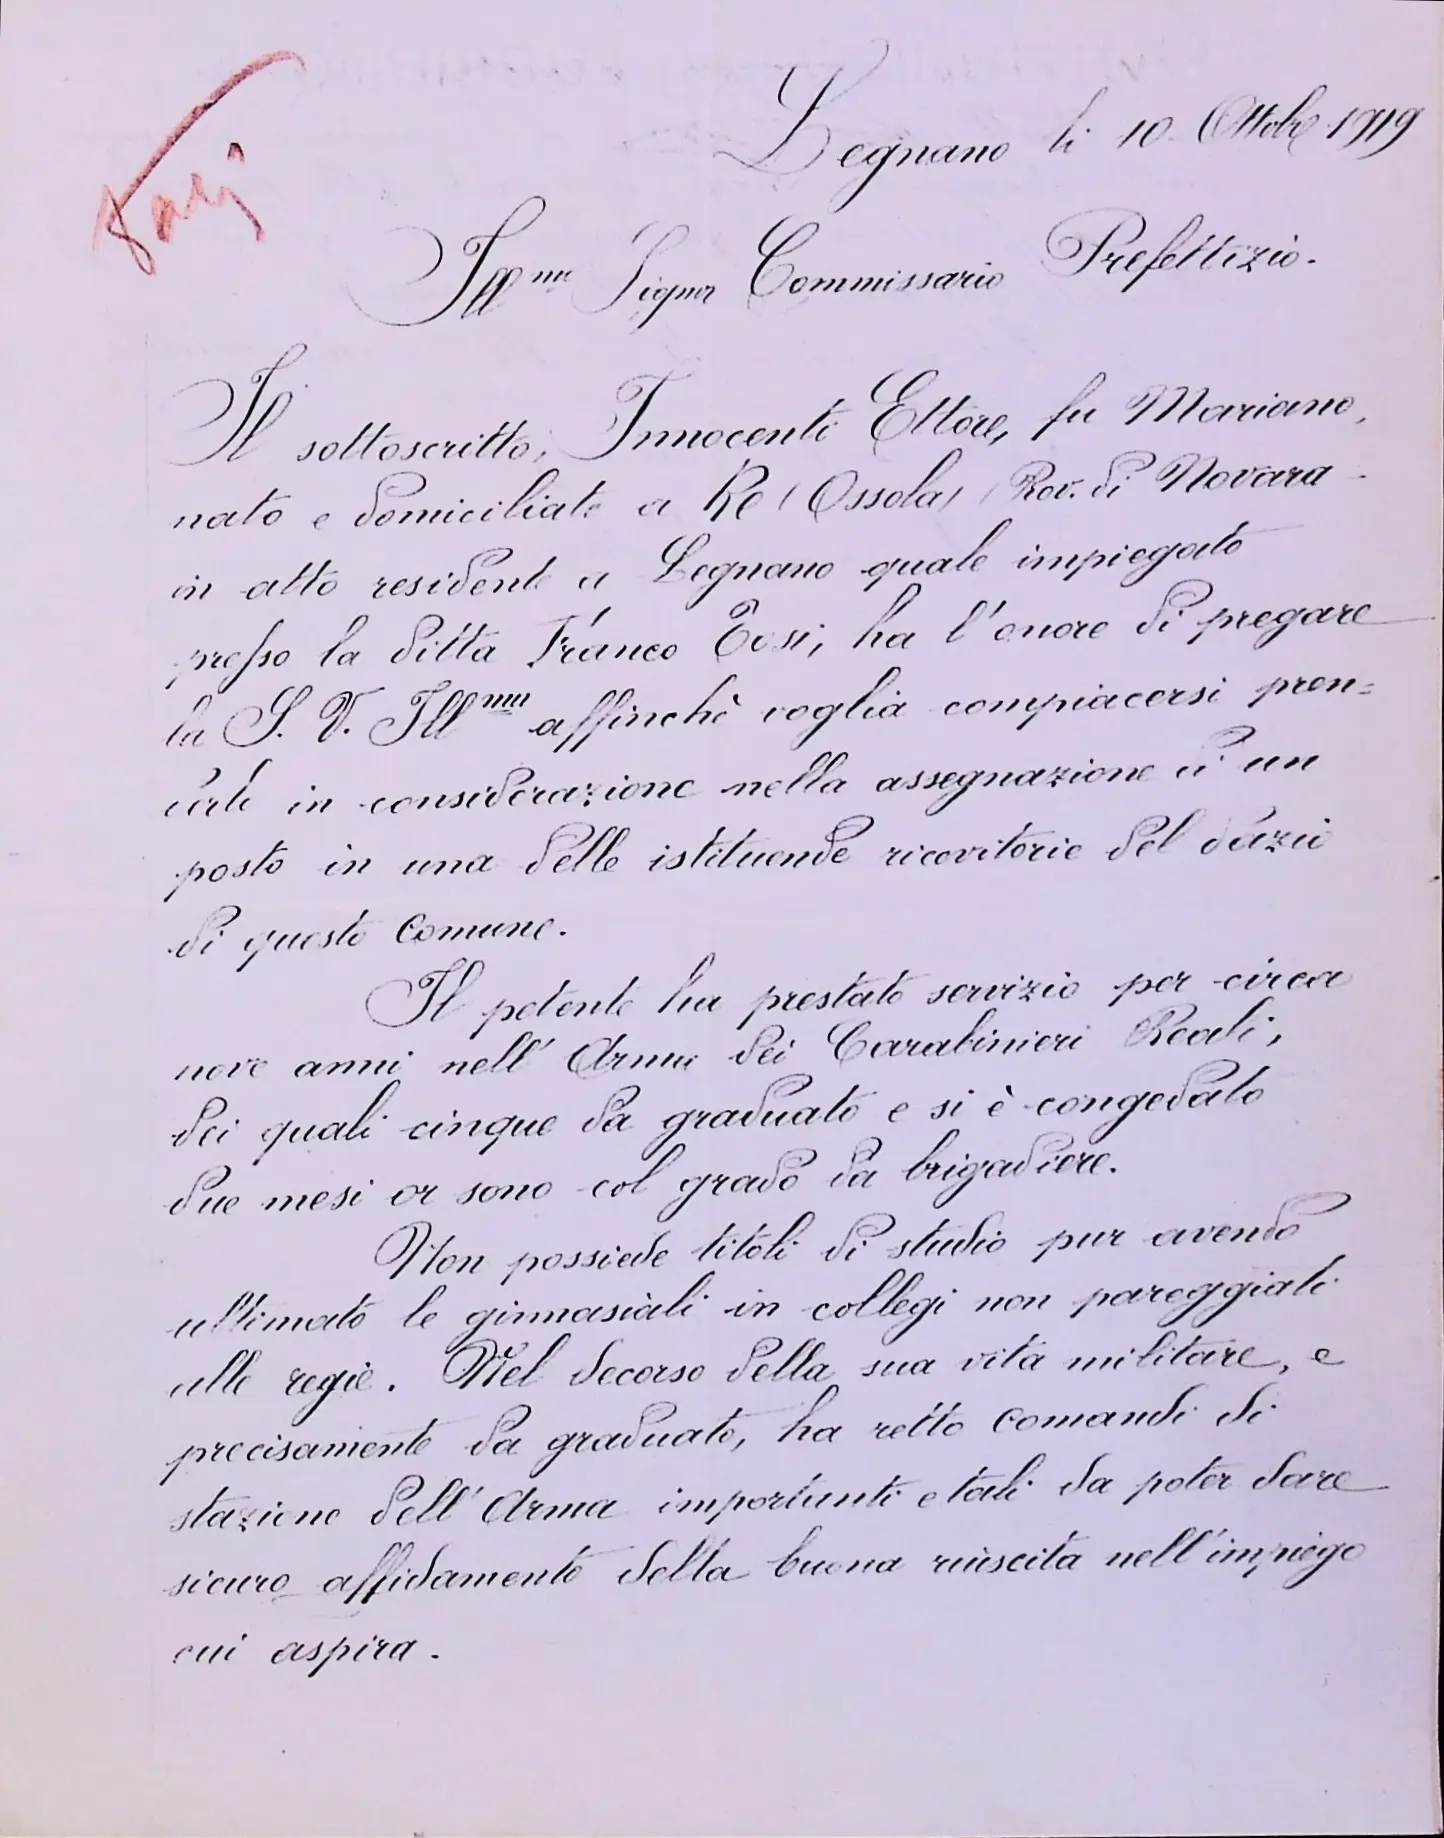 Legnano li 10 Ottobe 1919
Ill mo Signor Commissario Prefettizio.
Il sottoscritto, Innocenti Ettore, fu Mariano,
nato e domiciliato a Re (Ossola) Prov. di Novara -
in atto residente a Legnano quale impiegato
presso la ditta Franco Tosi, ha l'onore di pregare
la S. V. Ill ma affinchè voglia compiacersi pren=
derlo in considerazione nella assegnazione di un
posto in una delle istituende ricevitorie del dazio
di questo Comune.
Il petente ha prestato servizio per circa
nove anni nell'Arma dei Carabinieri Reali,
dei quali cinque da graduato e si è congedato
due mesi or sono col grado da brigadiere.
Non possiede titoli di studio pur avendo
ultimato le ginnasiali in collegi non pareggiati
alle regie. Nel decorso della sua vita militare, e
precisamente da graduato, ha retto comandi di
stazione dell'Arma importanti e tali da poter dare
sicuro affidamento della buona riuscita nell'impiego
cui aspira.